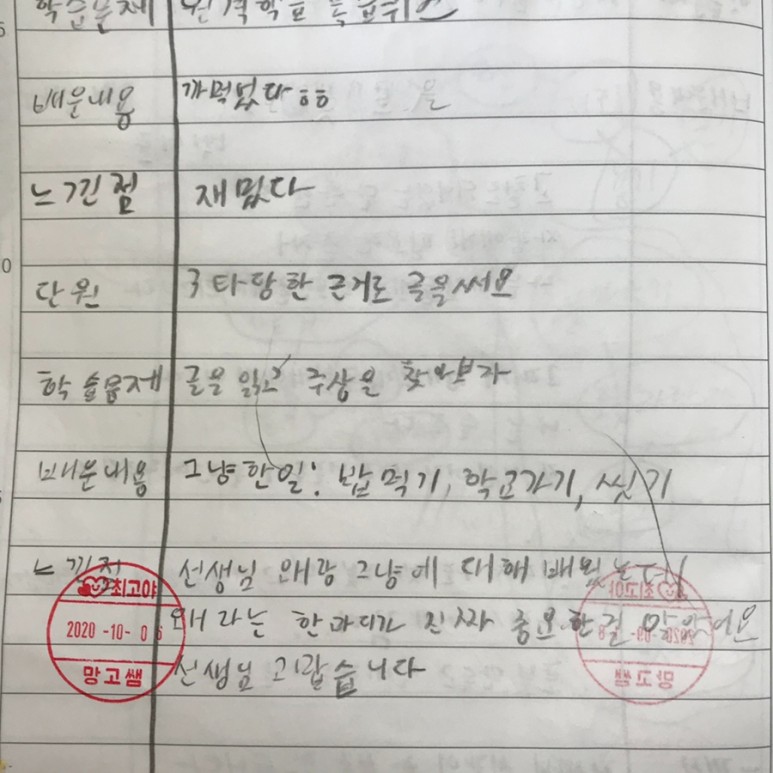 학습문제 원격학교
배운내용 까먹었다 ㅎㅎ
느낀점 재밌다
단원 3 타당한 근거로 글을써요
학습문제 글을 읽고 주장을 찾아보자
배운내용 그냥한일: 밥먹기, 학교가기, 씻기
느낀점 선생님 왜랑 그냥에 대해 배웠는데
왜 라는 한마디가 진짜 중요한걸 알았어요
선생님 고맙습니다
최고야
2020-10-06
망고쌤